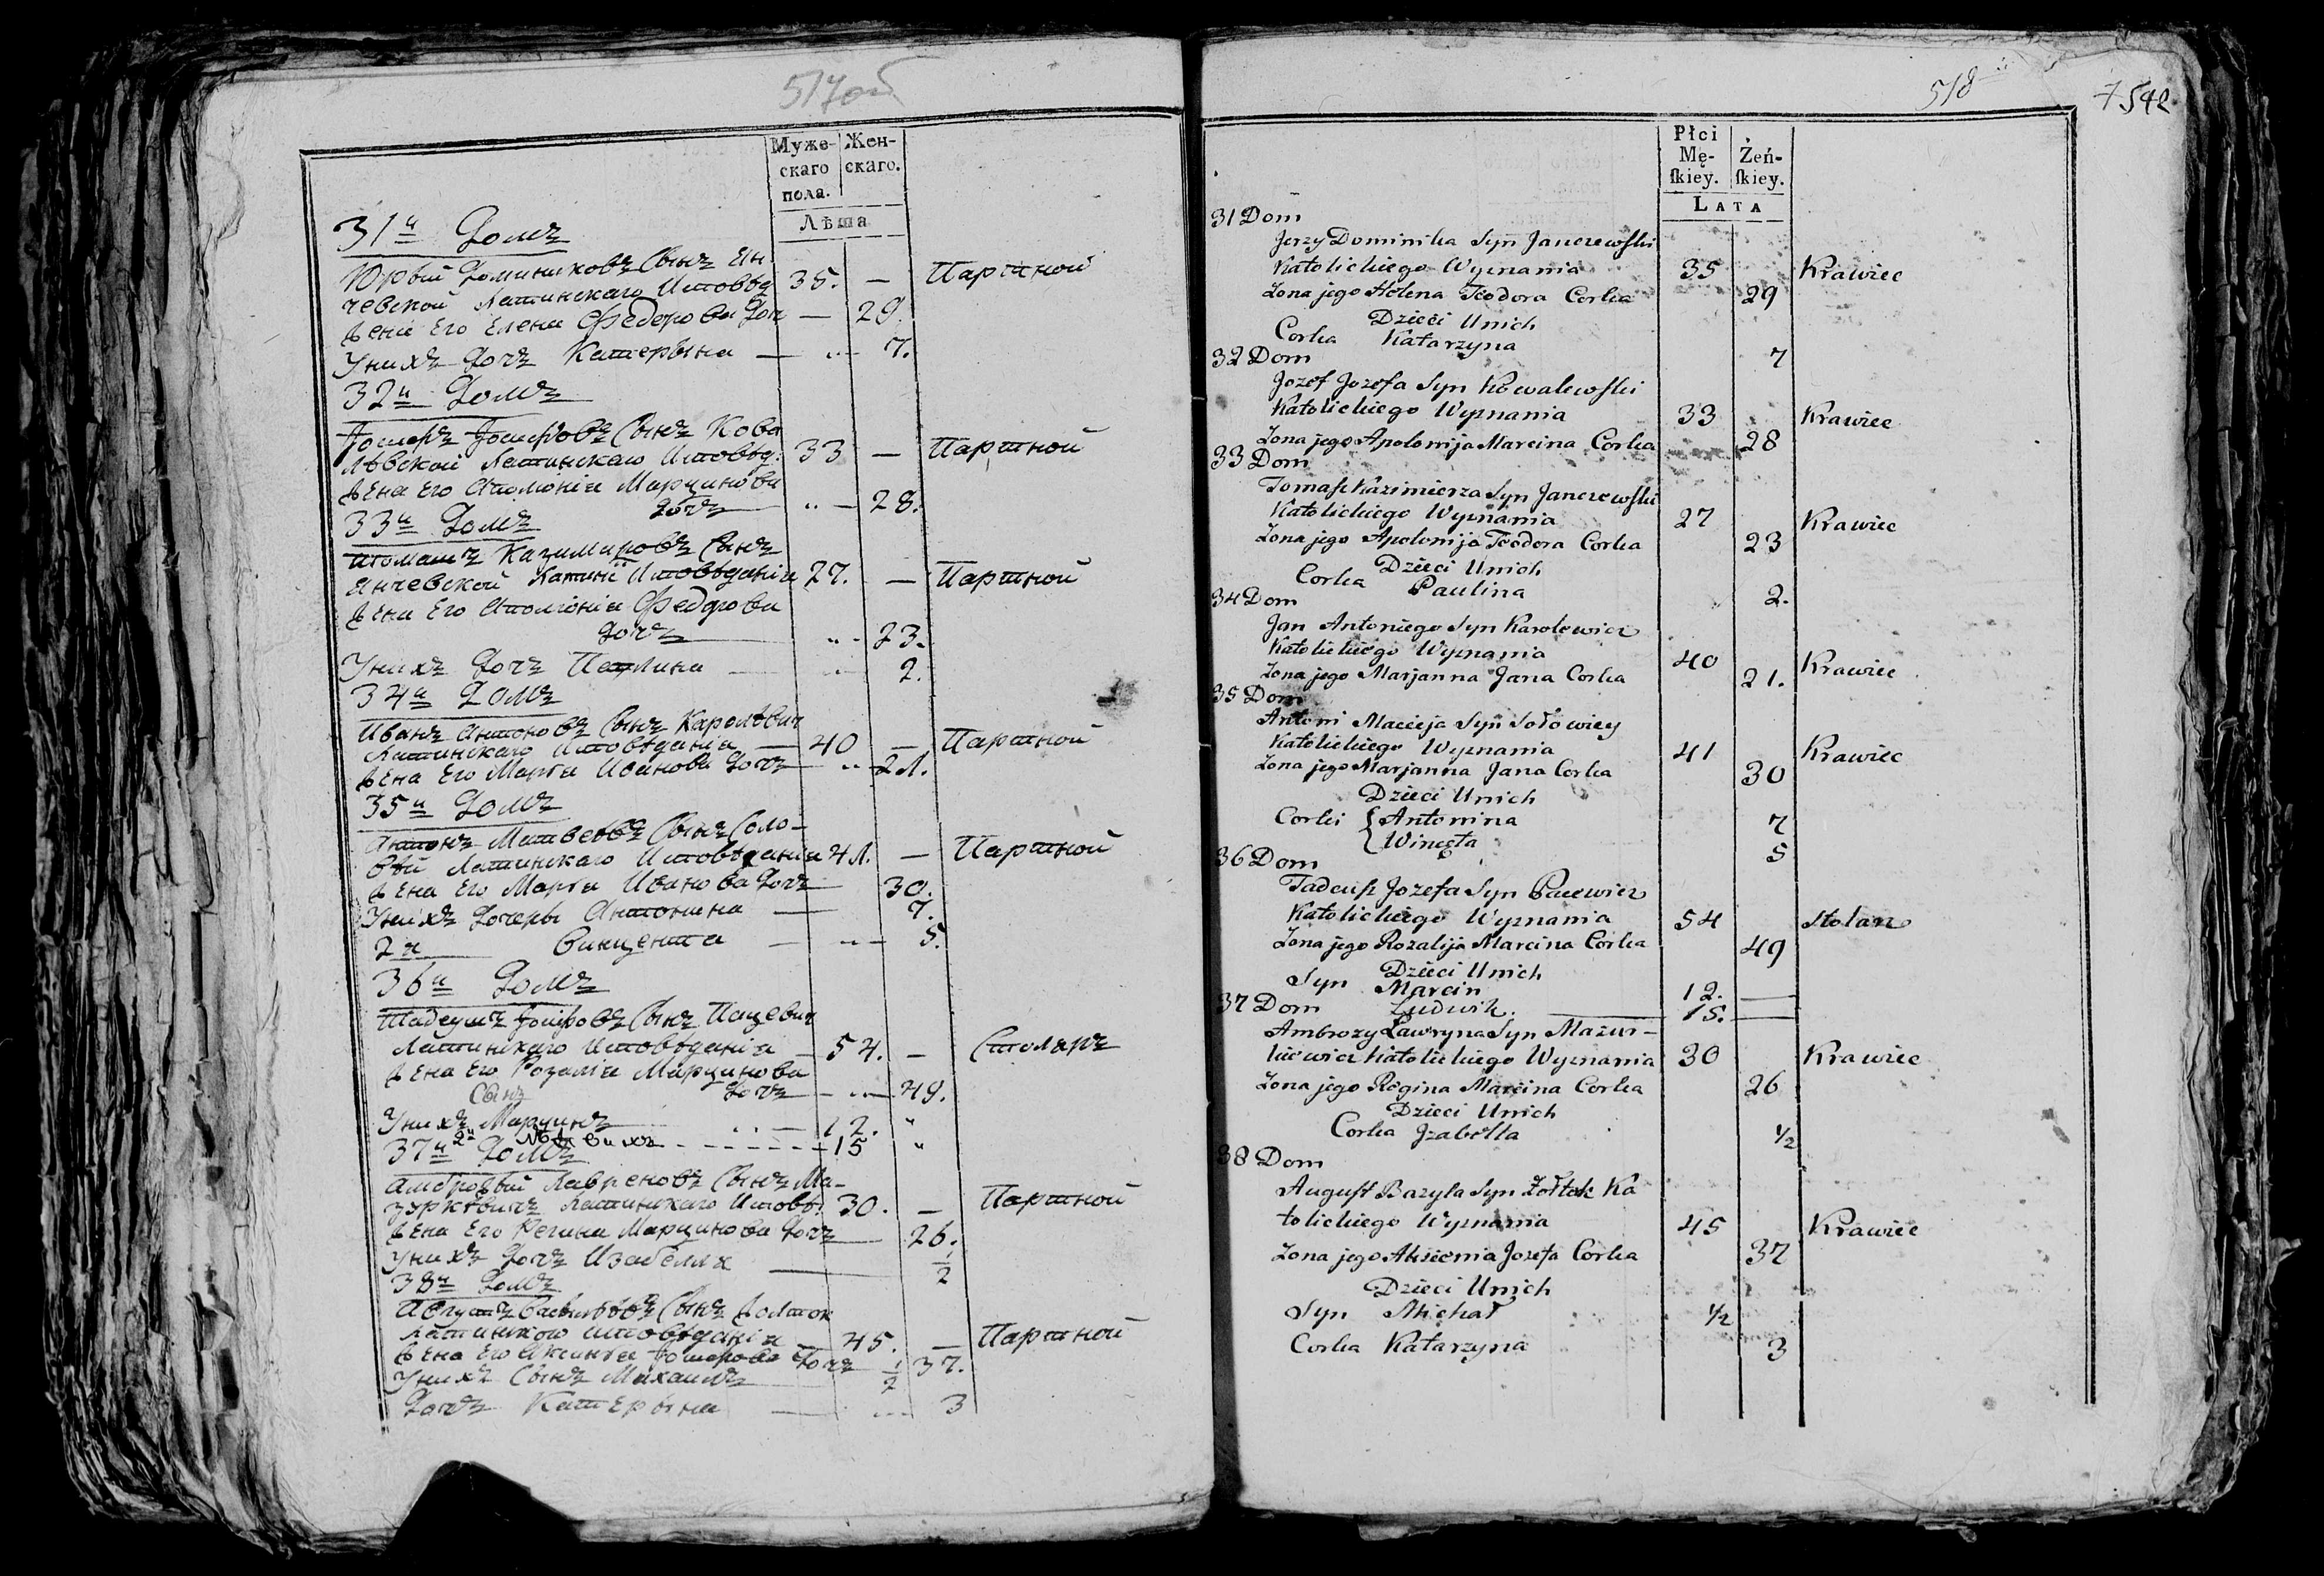 517об
Муже-
скаго
пола.
Жен-
скаго.
Лѣта
31й Домъ
Юрій Доминиковъ Сынъ Ян-
чевской Латинскаго Исповѣд 35. — Партной
Жена Его Елена Федорова Доч — 29.
У нихъ Дочь Катерына — 7.
32й Домъ
Іосифъ Іосифовъ Сынъ Кова
лѣвской Латинскаго Исповѣд. 33 — Партной
Жена Его Аполонія Марцинова
Дочь — 28.
33й Домъ
Томашъ Казимировъ Сынъ
Янчевской Латинс Исповѣданія 27. — Партной
Жена Его Аполонія Федорова
Дочь — 23.
У нихъ Дочь Паулина — 2.
34й Домъ
Иванъ Антоновъ Сынъ Каролѣвич
Латинскаго Исповѣданія — 40 — Партной
Жена Его Марья Иванова Дочь — 21.
35й Домъ
Антонъ Матвеевъ Сынъ Соло-
вѣй Латинскаго Исповѣданія 41. — Партной
Жена Его Марья Иванова Дочь 30.
У нихъ Дочеры Антонина — 7.
2я Винцента — 5.
36й Домъ
Тадеушъ Іосифовъ Сынъ Пацевич
Латинскаго Исповѣданія — 54. — Столяръ
Жена Его Розалія Марцинова
Сынъ Дочь — 49.
У нихъ Марцинъ 12. "
2й Людвихъ 15 "
37й Домъ
Амброжій Лавреновъ Сынъ Ма-
зуркѣвичъ Латинскаго Исповѣ. 30. — Партной
Жена Его Регина Марцинова Дочь 26.
У нихъ Дочь Изабелля — 1/2
38й Домъ
Августъ Васильѣвъ Сынъ Жолток
Латинского исповѣданія — 45. — Партной
Жена Его Аксинья Іосифова Дочь 37.
У нихъ Сынъ Михаилъ 1/2
Дочь Катерына — 3
518
7542
Płci
Mę-
ſkiey.
Żeń-
ſkiey.
LATA
31 Dom
Jerzy Dominika Syn Janczewſki
Katolickiego Wyznania 35 Krawiec
Zona jego Helena Teodora Corka 29
Dzieci Unich
Corka Katarzyna 7
32 Dom
Jozef Jozefa Syn Kowalewſki
Katolickiego Wyznania 33 Krawiec
Zona jego Apolonija Marcina Corka 28
33 Dom
Tomaſz Kazimierza Syn Janczewſki
Katolickiego Wyznania 27 Krawiec
Zona jego Apolonija Teodora Corka 23
Dzieci Unich
Corka Paulina 2.
34 Dom
Jan Antoniego Syn Karolewicz
Katolickiego Wyznania 40 Krawiec
Zona jego Marjanna Jana Corka 21.
35 Dom
Antoni Macieja Syn Sołowiey
Katolickiego Wyznania 41 Krawiec
Zona jego Marjanna Jana Corka 30
Dzieci Unich
Corki { Antonina 7
Wincęta 5
36 Dom
Tadeuſz Jozefa Syn Pacewicz
Katolickiego Wyznania 54 Stolarz
Zona jego Rozalija Marcina Corka 49
Dzieci Unich
Syn Marcin 12. —
Ludwik. — 15. —
37 Dom
Ambrozy Lawryna Syn Mazur-
kiewicz Katolickiego Wyznania 30 Krawiec
Zona jego Regina Marcina Corka 26
Dzieci Unich
Corka Jzabella 1/2
38 Dom
Auguſt Bazyla Syn Żołtok Ka
tolickiego Wyznania 45 Krawiec
Zona jego Aksienia Jozefa Corka 37
Dzieci Unich
Syn Michał 1/2
Corka Katarzyna 3